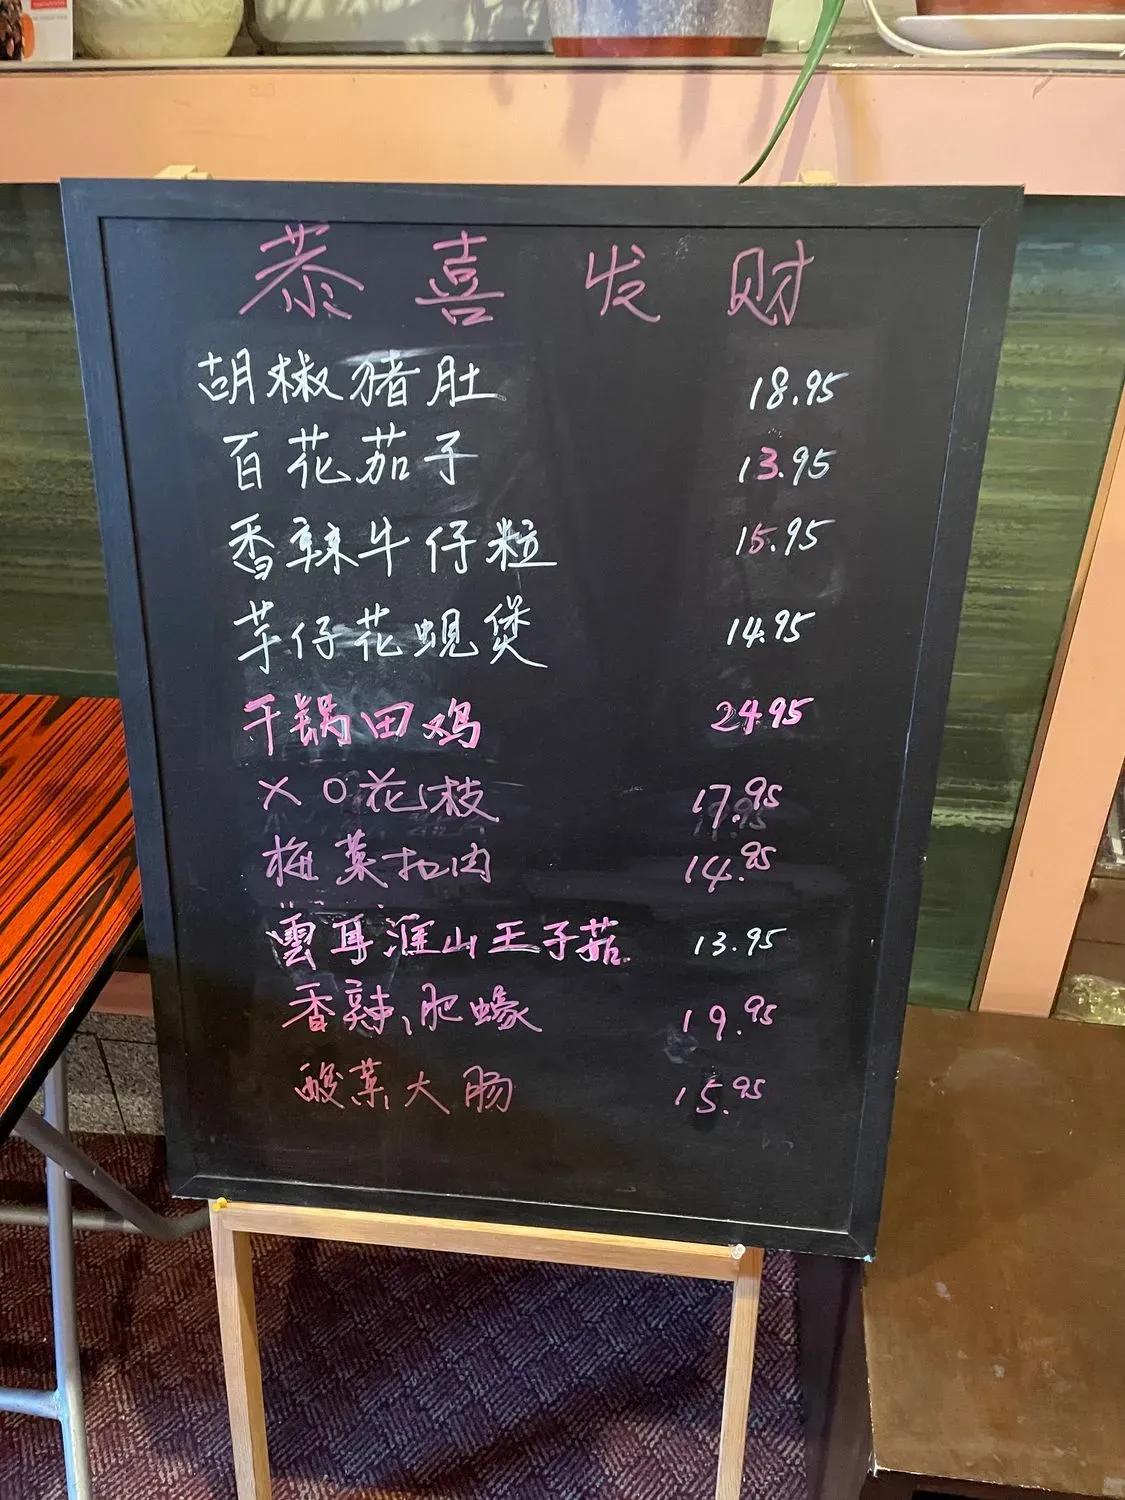 恭喜发财
胡椒猪肚 18.95
百花茄子 13.95
香辣牛仔粒 15.95
芋仔花蚬煲 14.95
干锅田鸡 24.95
XO花枝 17.95
梅菜扣肉 14.95
雲耳淮山王子菇 13.95
香辣肥蠔 19.95
酸菜大肠 15.95